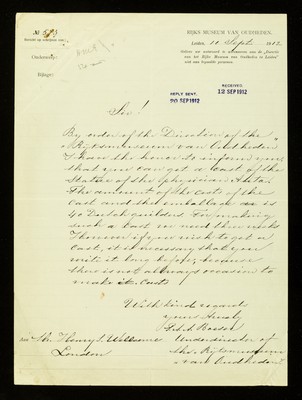 No. 583
RIJKS MUSEUM VAN OUDHEDEN.
Leiden, 10 Sept. 1912
Onderwerp:
Bijlage:
REPLY SENT.
20 SEP 1912
RECEIVED.
12 SEP 1912
Sir!
By order of the Direction of the
Rijksmuseum van Oudheden
I have the honor to inform you,
that you can get a cast of the
Statue of the physician
The amount of the costs of the
Cast and the emballage is
40 Dutch guilders. For making
such a cast we need three weeks
However if you wish to get a
Cast, it is necessary that you
write it long before, because
there is not always occasion to
make it casts
With kind regard
yours truly
Underdirector of
the Rijksmuseum
van Oudheden
Aan Mr. Henry S. Wellcome
London